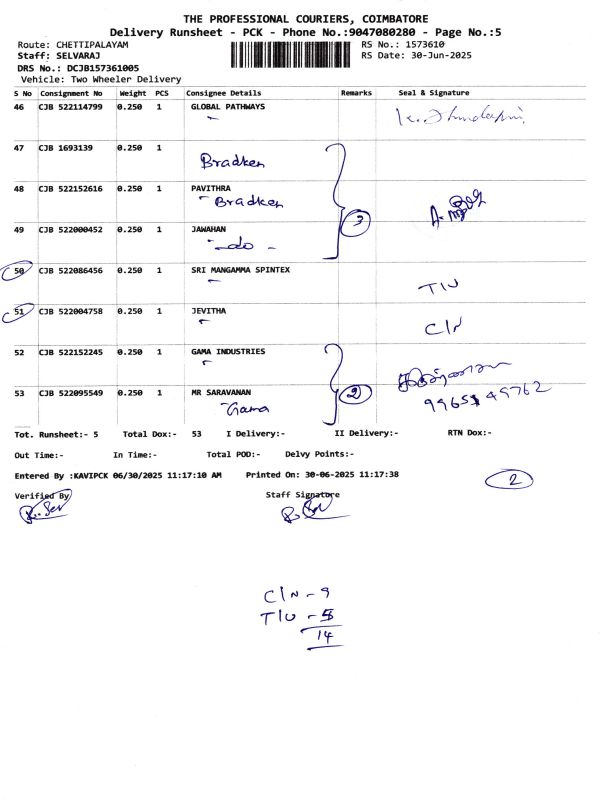 THE PROFESSIONAL COURIERS, COIMBATORE
Delivery Runsheet - PCK - Phone No.:9047080280 - Page No.:5
Route: CHETTIPALAYAM RS No.: 1573610
Staff: SELVARAJ RS Date: 30-Jun-2025
DRS No.: DCJB157361005
Vehicle: Two Wheeler Delivery
S No Consignment No Weight PCS Consignee Details Remarks Seal & Signature
46 CJB 522114799 0.250 1 GLOBAL PATHWAYS
47 CJB 1693139 0.250 1
Bradken
48 CJB 522152616 0.250 1 PAVITHRA
Bradken
3
49 CJB 522000452 0.250 1 JAWAHAN
-do-
50 CJB 522086456 0.250 1 SRI MANGAMMA SPINTEX
T/U
51 CJB 522004758 0.250 1 JEVITHA
C/N
52 CJB 522152245 0.250 1 GAMA INDUSTRIES
53 CJB 522095549 0.250 1 MR SARAVANAN
Gama
2
Tot. Runsheet:- 5 Total Dox:- 53 I Delivery:- II Delivery:- RTN Dox:-
Out Time:- In Time:- Total POD:- Delvy Points:-
Entered By :KAVIPCK 06/30/2025 11:17:10 AM Printed On: 30-06-2025 11:17:38
2
Verified By Staff Signature
C/N - 9
T/U - 5
14